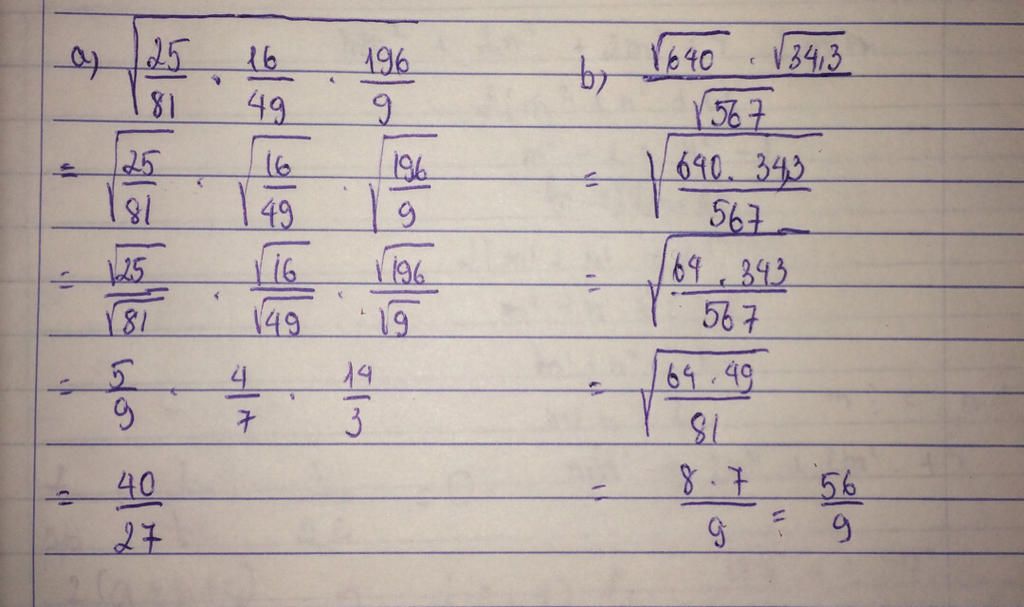 a) √(25/81 . 16/49 . 196/9)
= √(25/81) . √(16/49) . √(196/9)
= √25/√81 . √16/√49 . √196/√9
= 5/9 . 4/7 . 14/3
= 40/27
b) (√640 . √34,3)/√567
= √((640 . 34,3)/567)
= √((64 . 343)/567)
= √((64 . 49)/81)
= (8 . 7)/9 = 56/9